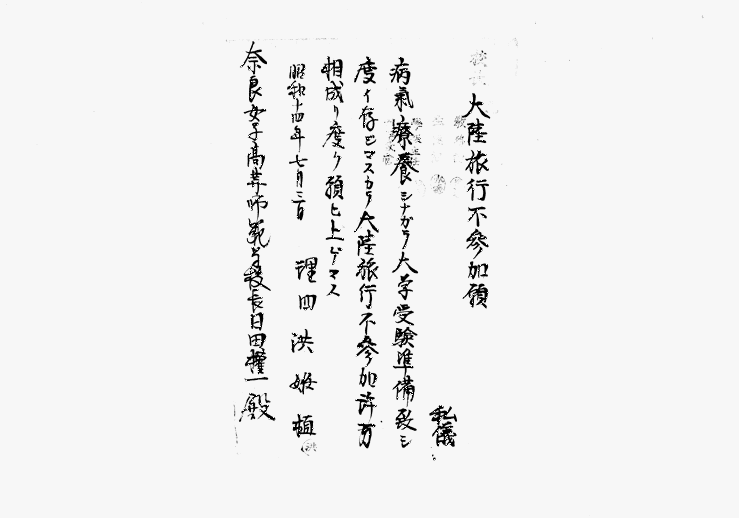 大陸旅行不參加願
私儀
病氣療養シナガラ大学受驗準備致シ
度イ存ジマスカラ大陸旅行不參加許可
相成リ度ク願ヒ上ゲマス
昭和十四年七月三日
理四 洪姬植
奈良女子高等師範学校長日田權一殿